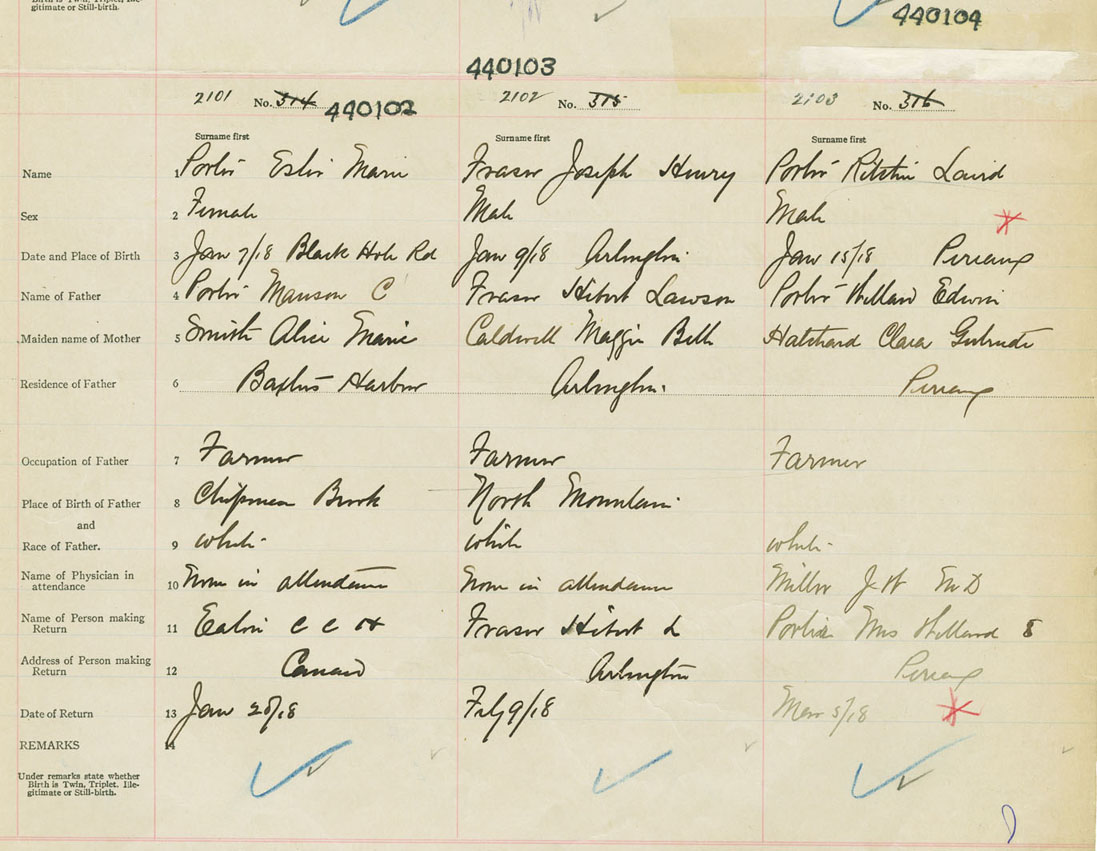 Birth is Twin, Triplet, Ille-
gitimate or Still-birth.
440104
440103
2101 No. 314 440102 2102 No. 315 2103 No. 316
Surname first Surname first Surname first
Name 1 Porter Eslie Marie Fraser Joseph Henry Porter Ritchie Laird
Sex 2 Female Male Male
Date and Place of Birth 3 Jan 7/18 Black Hole Rd Jan 9/18 Arlington Jan 15/18 Pereaux
Name of Father 4 Porter Manson C Fraser Hibert Lawson Porter Willard Edwin
Maiden name of Mother 5 Smith Alice Marie Caldwell Maggie Bell Clara Gertrude
Residence of Father 6 Baxters Harbour Arlington Pereaux
Occupation of Father 7 Farmer Farmer Farmer
Place of Birth of Father 8 Chipman Brook North Mountain
and
Race of Father. 9 white white white
Name of Physician in
attendance 10 None in attendance None in attendance Miller J W M D
Name of Person making
Return 11 Eaton C C H Fraser Hibert L Porter Mrs Willard E
Address of Person making
Return 12 Canard Arlington Pereaux
Date of Return 13 Jan 28/18 Feby 9/18 Mar 5/18
REMARKS 14
Under remarks state whether
Birth is Twin, Triplet. Ille-
gitimate or Still-birth.